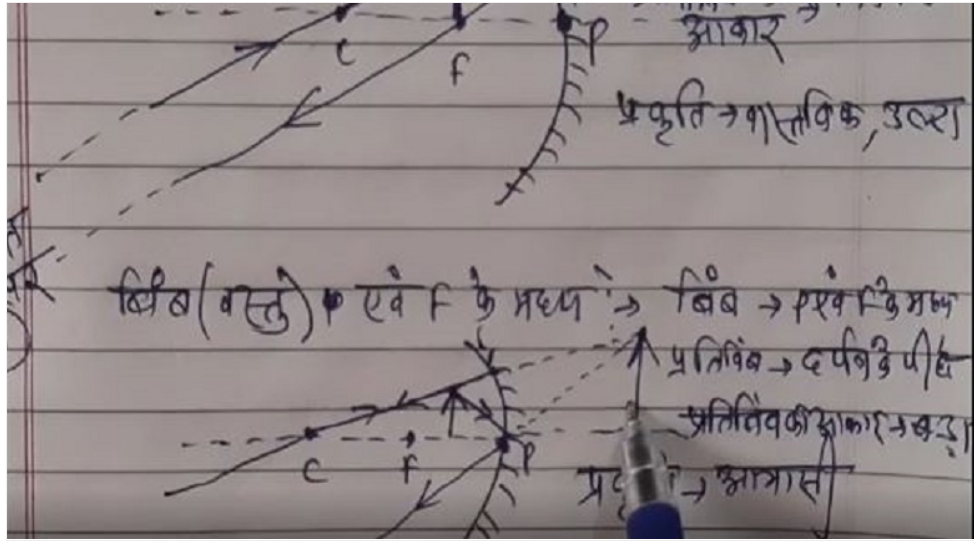 आकार
C F P
प्रकृति → वास्तविक, उल्टा
बिंब (वस्तु) P एवं F के मध्य :→ बिंब → P एवं F के मध्य
प्रतिबिंब → दर्पण के पीछे
प्रतिबिंब का आकार → बड़ा
C F P
→ आभासी